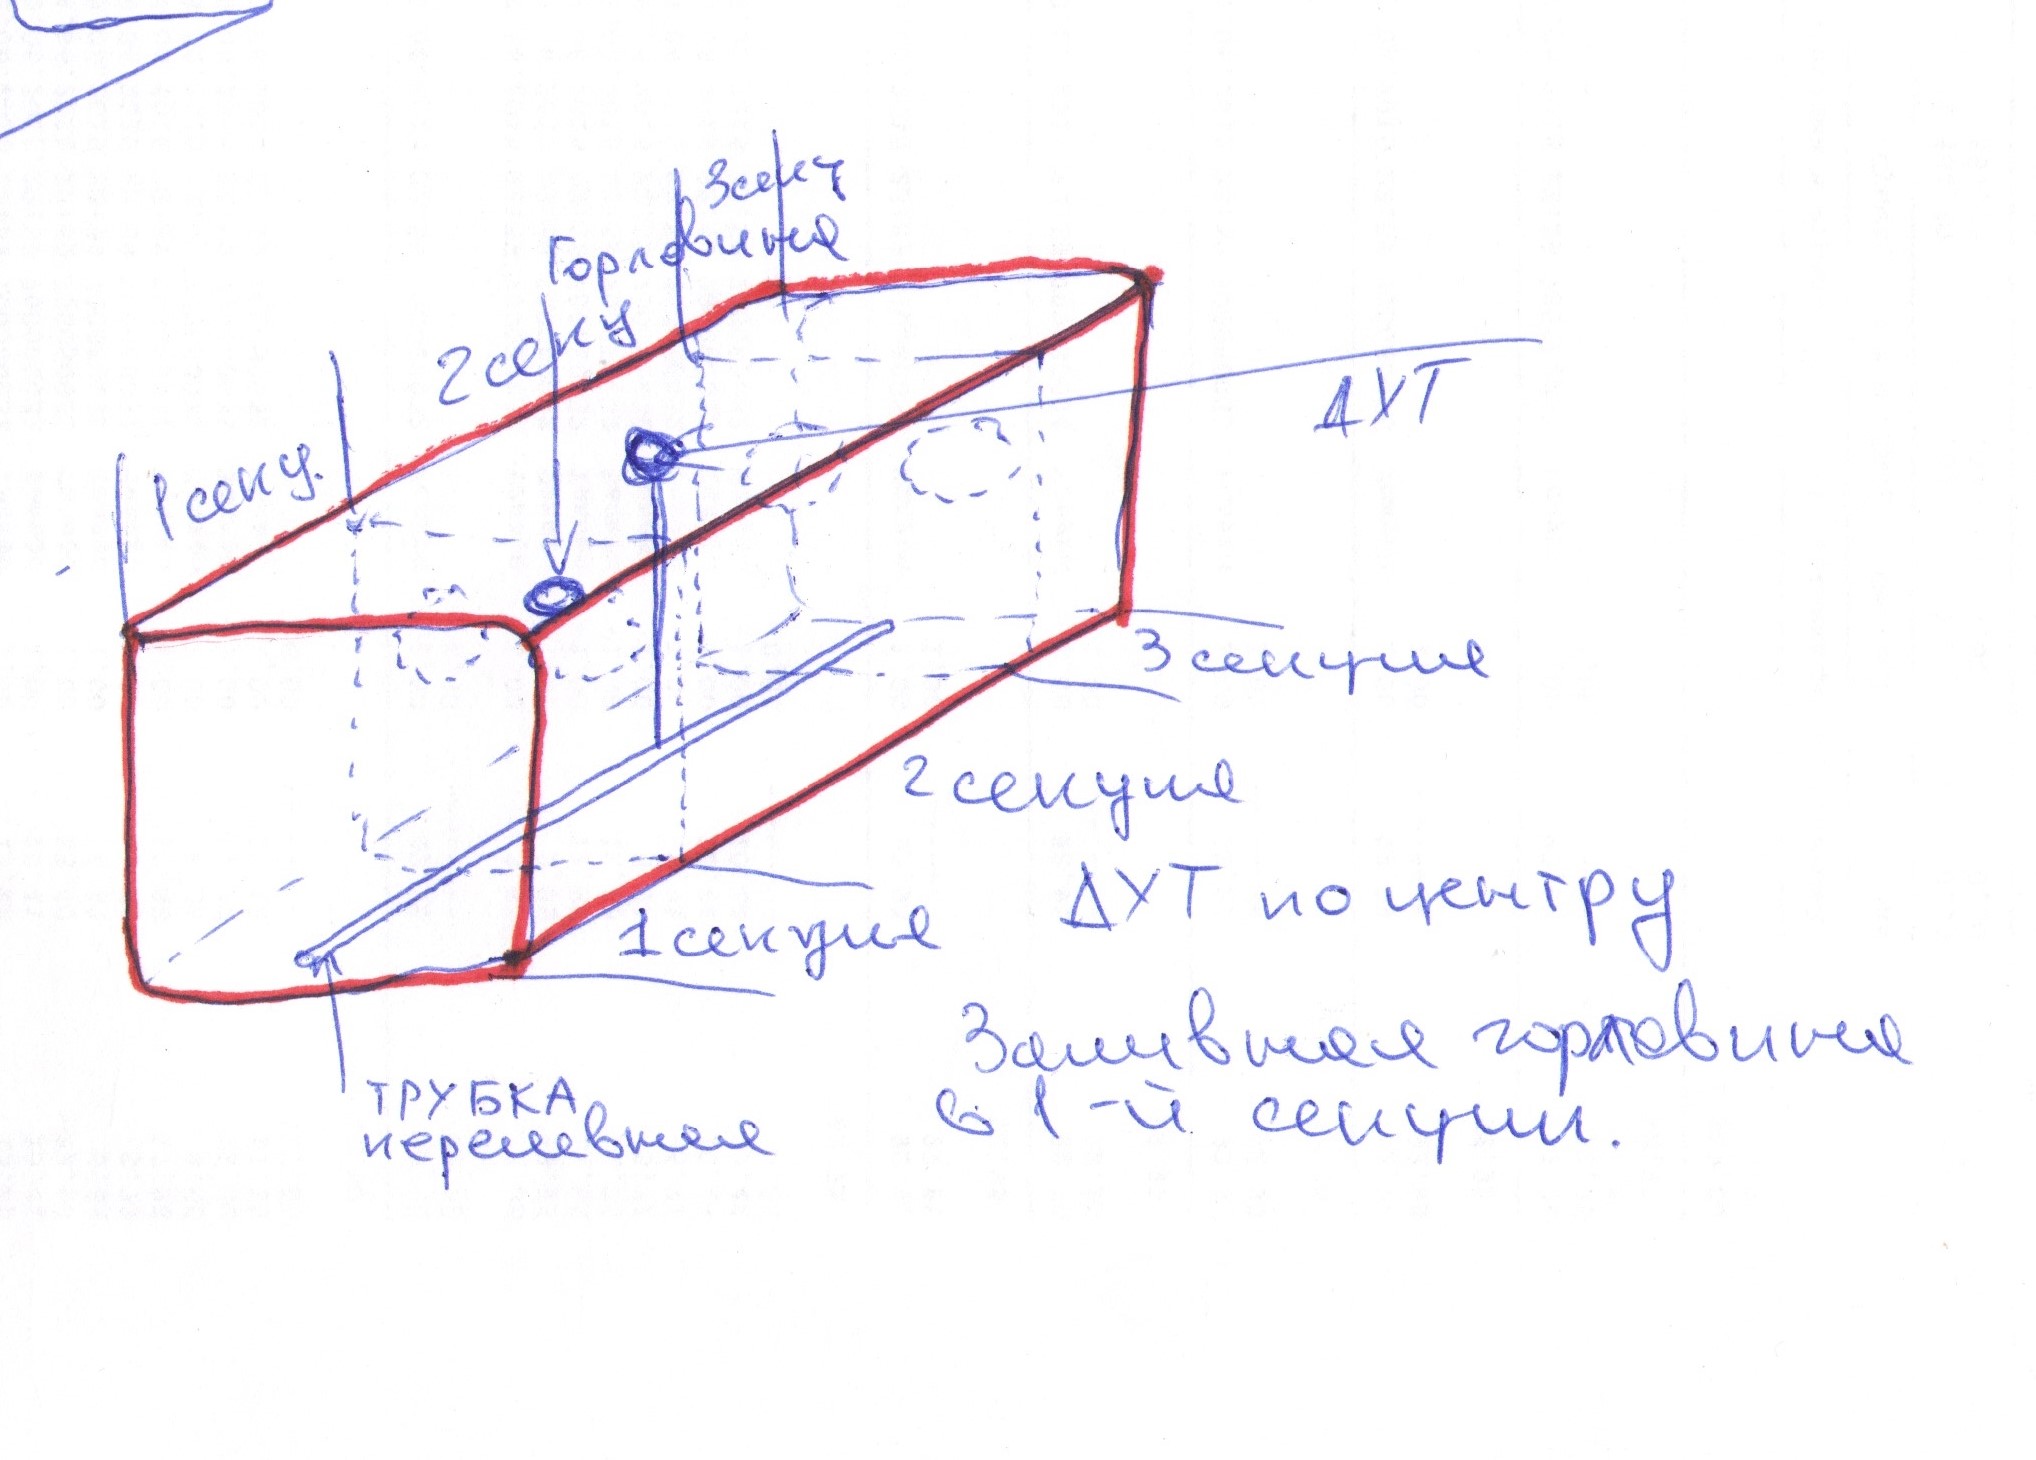 3 секу
Горловина
2 секу
1 секу.
ДУТ
3 секция
2 секция
1 секция
ДУТ по центру
Заливная горловина
в 1-й секции.
ТРУБКА
перелевная